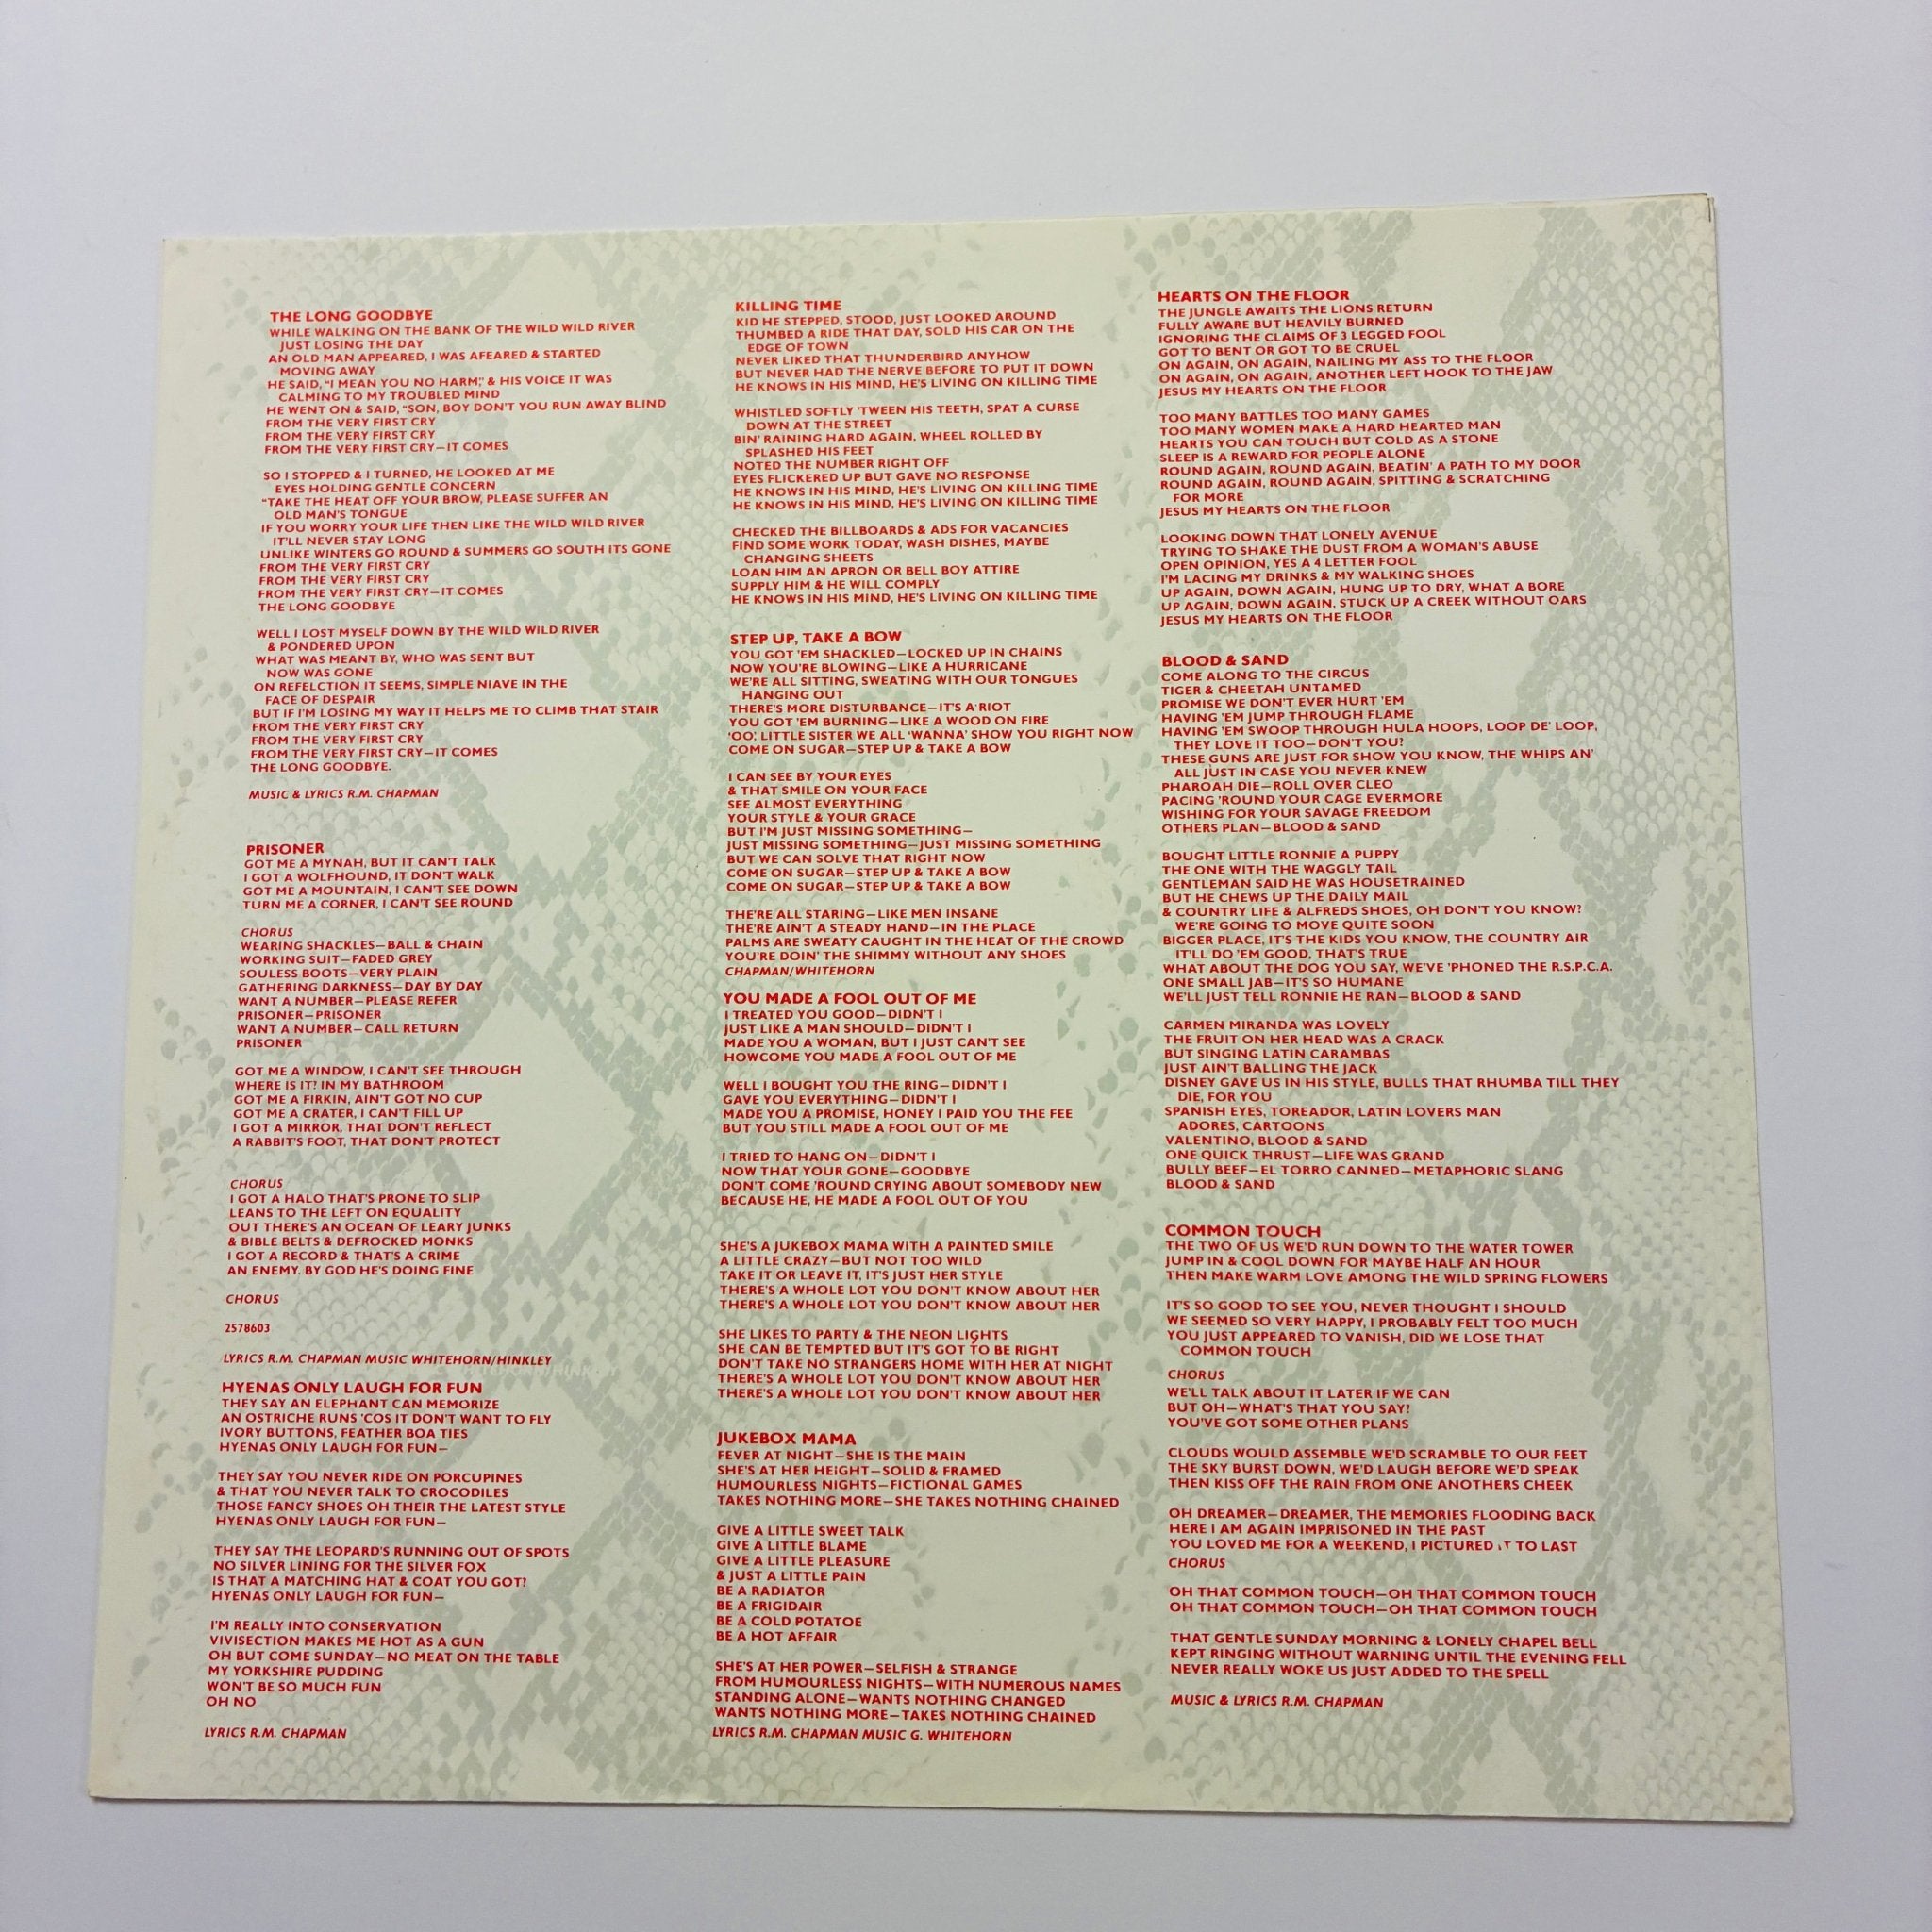 THE LONG GOODBYE
WHILE WALKING ON THE BANK OF THE WILD WILD RIVER
JUST LOSING THE DAY
AN OLD MAN APPEARED, I WAS AFEARED & STARTED
MOVING AWAY
HE SAID, "I MEAN YOU NO HARM," & HIS VOICE IT WAS
CALMING TO MY TROUBLED MIND
HE WENT ON & SAID, "SON, BOY DON'T YOU RUN AWAY BLIND
FROM THE VERY FIRST CRY
FROM THE VERY FIRST CRY
FROM THE VERY FIRST CRY—IT COMES

SO I STOPPED & I TURNED, HE LOOKED AT ME
EYES HOLDING GENTLE CONCERN
"TAKE THE HEAT OFF YOUR BROW, PLEASE SUFFER AN
OLD MAN'S TONGUE
IF YOU WORRY YOUR LIFE THEN LIKE THE WILD WILD RIVER
IT'LL NEVER STAY LONG
UNLIKE WINTERS GO ROUND & SUMMERS GO SOUTH ITS GONE
FROM THE VERY FIRST CRY
FROM THE VERY FIRST CRY
FROM THE VERY FIRST CRY—IT COMES
THE LONG GOODBYE

WELL I LOST MYSELF DOWN BY THE WILD WILD RIVER
& PONDERED UPON
WHAT WAS MEANT BY, WHO WAS SENT BUT
NOW WAS GONE
ON REFELCTION IT SEEMS, SIMPLE NIAVE IN THE
FACE OF DESPAIR
BUT IF I'M LOSING MY WAY IT HELPS ME TO CLIMB THAT STAIR
FROM THE VERY FIRST CRY
FROM THE VERY FIRST CRY
FROM THE VERY FIRST CRY—IT COMES
THE LONG GOODBYE.

MUSIC & LYRICS R.M. CHAPMAN

PRISONER
GOT ME A MYNAH, BUT IT CAN'T TALK
I GOT A WOLFHOUND, IT DON'T WALK
GOT ME A MOUNTAIN, I CAN'T SEE DOWN
TURN ME A CORNER, I CAN'T SEE ROUND

CHORUS
WEARING SHACKLES—BALL & CHAIN
WORKING SUIT—FADED GREY
SOULESS BOOTS—VERY PLAIN
GATHERING DARKNESS—DAY BY DAY
WANT A NUMBER—PLEASE REFER
PRISONER—PRISONER
WANT A NUMBER—CALL RETURN
PRISONER

GOT ME A WINDOW, I CAN'T SEE THROUGH
WHERE IS IT? IN MY BATHROOM
GOT ME A FIRKIN, AIN'T GOT NO CUP
GOT ME A CRATER, I CAN'T FILL UP
I GOT A MIRROR, THAT DON'T REFLECT
A RABBIT'S FOOT, THAT DON'T PROTECT

CHORUS
I GOT A HALO THAT'S PRONE TO SLIP
LEANS TO THE LEFT ON EQUALITY
OUT THERE'S AN OCEAN OF LEARY JUNKS
& BIBLE BELTS & DEFROCKED MONKS
I GOT A RECORD & THAT'S A CRIME
AN ENEMY. BY GOD HE'S DOING FINE

CHORUS

2578603

LYRICS R.M. CHAPMAN MUSIC WHITEHORN/HINKLEY

HYENAS ONLY LAUGH FOR FUN
THEY SAY AN ELEPHANT CAN MEMORIZE
AN OSTRICHE RUNS 'COS IT DON'T WANT TO FLY
IVORY BUTTONS, FEATHER BOA TIES
HYENAS ONLY LAUGH FOR FUN—

THEY SAY YOU NEVER RIDE ON PORCUPINES
& THAT YOU NEVER TALK TO CROCODILES
THOSE FANCY SHOES OH THEIR THE LATEST STYLE
HYENAS ONLY LAUGH FOR FUN—

THEY SAY THE LEOPARD'S RUNNING OUT OF SPOTS
NO SILVER LINING FOR THE SILVER FOX
IS THAT A MATCHING HAT & COAT YOU GOT?
HYENAS ONLY LAUGH FOR FUN—

I'M REALLY INTO CONSERVATION
VIVISECTION MAKES ME HOT AS A GUN
OH BUT COME SUNDAY—NO MEAT ON THE TABLE
MY YORKSHIRE PUDDING
WON'T BE SO MUCH FUN
OH NO

LYRICS R.M. CHAPMAN

KILLING TIME
KID HE STEPPED, STOOD, JUST LOOKED AROUND
THUMBED A RIDE THAT DAY, SOLD HIS CAR ON THE
EDGE OF TOWN
NEVER LIKED THAT THUNDERBIRD ANYHOW
BUT NEVER HAD THE NERVE BEFORE TO PUT IT DOWN
HE KNOWS IN HIS MIND, HE'S LIVING ON KILLING TIME

WHISTLED SOFTLY 'TWEEN HIS TEETH, SPAT A CURSE
DOWN AT THE STREET
BIN' RAINING HARD AGAIN, WHEEL ROLLED BY
SPLASHED HIS FEET
NOTED THE NUMBER RIGHT OFF
EYES FLICKERED UP BUT GAVE NO RESPONSE
HE KNOWS IN HIS MIND, HE'S LIVING ON KILLING TIME
HE KNOWS IN HIS MIND, HE'S LIVING ON KILLING TIME

CHECKED THE BILLBOARDS & ADS FOR VACANCIES
FIND SOME WORK TODAY, WASH DISHES, MAYBE
CHANGING SHEETS
LOAN HIM AN APRON OR BELL BOY ATTIRE
SUPPLY HIM & HE WILL COMPLY
HE KNOWS IN HIS MIND, HE'S LIVING ON KILLING TIME

STEP UP, TAKE A BOW
YOU GOT 'EM SHACKLED—LOCKED UP IN CHAINS
NOW YOU'RE BLOWING—LIKE A HURRICANE
WE'RE ALL SITTING, SWEATING WITH OUR TONGUES
HANGING OUT
THERE'S MORE DISTURBANCE—IT'S A RIOT
YOU GOT 'EM BURNING—LIKE A WOOD ON FIRE
'OO', LITTLE SISTER WE ALL 'WANNA' SHOW YOU RIGHT NOW
COME ON SUGAR—STEP UP & TAKE A BOW

I CAN SEE BY YOUR EYES
& THAT SMILE ON YOUR FACE
SEE ALMOST EVERYTHING
YOUR STYLE & YOUR GRACE
BUT I'M JUST MISSING SOMETHING—
JUST MISSING SOMETHING—JUST MISSING SOMETHING
BUT WE CAN SOLVE THAT RIGHT NOW
COME ON SUGAR—STEP UP & TAKE A BOW
COME ON SUGAR—STEP UP & TAKE A BOW

THE'RE ALL STARING—LIKE MEN INSANE
THE'RE AIN'T A STEADY HAND—IN THE PLACE
PALMS ARE SWEATY CAUGHT IN THE HEAT OF THE CROWD
YOU'RE DOIN' THE SHIMMY WITHOUT ANY SHOES
CHAPMAN/WHITEHORN

YOU MADE A FOOL OUT OF ME
I TREATED YOU GOOD—DIDN'T I
JUST LIKE A MAN SHOULD—DIDN'T I
MADE YOU A WOMAN, BUT I JUST CAN'T SEE
HOWCOME YOU MADE A FOOL OUT OF ME

WELL I BOUGHT YOU THE RING—DIDN'T I
GAVE YOU EVERYTHING—DIDN'T I
MADE YOU A PROMISE, HONEY I PAID YOU THE FEE
BUT YOU STILL MADE A FOOL OUT OF ME

I TRIED TO HANG ON—DIDN'T I
NOW THAT YOUR GONE—GOODBYE
DON'T COME 'ROUND CRYING ABOUT SOMEBODY NEW
BECAUSE HE, HE MADE A FOOL OUT OF YOU

SHE'S A JUKEBOX MAMA WITH A PAINTED SMILE
A LITTLE CRAZY—BUT NOT TOO WILD
TAKE IT OR LEAVE IT, IT'S JUST HER STYLE
THERE'S A WHOLE LOT YOU DON'T KNOW ABOUT HER
THERE'S A WHOLE LOT YOU DON'T KNOW ABOUT HER

SHE LIKES TO PARTY & THE NEON LIGHTS
SHE CAN BE TEMPTED BUT IT'S GOT TO BE RIGHT
DON'T TAKE NO STRANGERS HOME WITH HER AT NIGHT
THERE'S A WHOLE LOT YOU DON'T KNOW ABOUT HER
THERE'S A WHOLE LOT YOU DON'T KNOW ABOUT HER

JUKEBOX MAMA
FEVER AT NIGHT—SHE IS THE MAIN
SHE'S AT HER HEIGHT—SOLID & FRAMED
HUMOURLESS NIGHTS—FICTIONAL GAMES
TAKES NOTHING MORE—SHE TAKES NOTHING CHAINED

GIVE A LITTLE SWEET TALK
GIVE A LITTLE BLAME
GIVE A LITTLE PLEASURE
& JUST A LITTLE PAIN
BE A RADIATOR
BE A FRIGIDAIR
BE A COLD POTATOE
BE A HOT AFFAIR

SHE'S AT HER POWER—SELFISH & STRANGE
FROM HUMOURLESS NIGHTS—WITH NUMEROUS NAMES
STANDING ALONE—WANTS NOTHING CHANGED
WANTS NOTHING MORE—TAKES NOTHING CHAINED
LYRICS R.M. CHAPMAN MUSIC G. WHITEHORN

HEARTS ON THE FLOOR
THE JUNGLE AWAITS THE LIONS RETURN
FULLY AWARE BUT HEAVILY BURNED
IGNORING THE CLAIMS OF 3 LEGGED FOOL
GOT TO BENT OR GOT TO BE CRUEL
ON AGAIN, ON AGAIN, NAILING MY ASS TO THE FLOOR
ON AGAIN, ON AGAIN, ANOTHER LEFT HOOK TO THE JAW
JESUS MY HEARTS ON THE FLOOR

TOO MANY BATTLES TOO MANY GAMES
TOO MANY WOMEN MAKE A HARD HEARTED MAN
HEARTS YOU CAN TOUCH BUT COLD AS A STONE
SLEEP IS A REWARD FOR PEOPLE ALONE
ROUND AGAIN, ROUND AGAIN, BEATIN' A PATH TO MY DOOR
ROUND AGAIN, ROUND AGAIN, SPITTING & SCRATCHING
FOR MORE
JESUS MY HEARTS ON THE FLOOR

LOOKING DOWN THAT LONELY AVENUE
TRYING TO SHAKE THE DUST FROM A WOMAN'S ABUSE
OPEN OPINION, YES A 4 LETTER FOOL
I'M LACING MY DRINKS & MY WALKING SHOES
UP AGAIN, DOWN AGAIN, HUNG UP TO DRY, WHAT A BORE
UP AGAIN, DOWN AGAIN, STUCK UP A CREEK WITHOUT OARS
JESUS MY HEARTS ON THE FLOOR

BLOOD & SAND
COME ALONG TO THE CIRCUS
TIGER & CHEETAH UNTAMED
PROMISE WE DON'T EVER HURT 'EM
HAVING 'EM JUMP THROUGH FLAME
HAVING 'EM SWOOP THROUGH HULA HOOPS, LOOP DE' LOOP,
THEY LOVE IT TOO—DON'T YOU?
THESE GUNS ARE JUST FOR SHOW YOU KNOW, THE WHIPS AN'
ALL JUST IN CASE YOU NEVER KNEW
PHAROAH DIE—ROLL OVER CLEO
PACING 'ROUND YOUR CAGE EVERMORE
WISHING FOR YOUR SAVAGE FREEDOM
OTHERS PLAN—BLOOD & SAND

BOUGHT LITTLE RONNIE A PUPPY
THE ONE WITH THE WAGGLY TAIL
GENTLEMAN SAID HE WAS HOUSETRAINED
BUT HE CHEWS UP THE DAILY MAIL
& COUNTRY LIFE & ALFREDS SHOES, OH DON'T YOU KNOW?
WE'RE GOING TO MOVE QUITE SOON
BIGGER PLACE, IT'S THE KIDS YOU KNOW, THE COUNTRY AIR
IT'LL DO 'EM GOOD, THAT'S TRUE
WHAT ABOUT THE DOG YOU SAY, WE'VE 'PHONED THE R.S.P.C.A.
ONE SMALL JAB—IT'S SO HUMANE
WE'LL JUST TELL RONNIE HE RAN—BLOOD & SAND

CARMEN MIRANDA WAS LOVELY
THE FRUIT ON HER HEAD WAS A CRACK
BUT SINGING LATIN CARAMBAS
JUST AIN'T BALLING THE JACK
DISNEY GAVE US IN HIS STYLE, BULLS THAT RHUMBA TILL THEY
DIE, FOR YOU
SPANISH EYES, TOREADOR, LATIN LOVERS MAN
ADORES, CARTOONS
VALENTINO, BLOOD & SAND
ONE QUICK THRUST—LIFE WAS GRAND
BULLY BEEF—EL TORRO CANNED—METAPHORIC SLANG
BLOOD & SAND

COMMON TOUCH
THE TWO OF US WE'D RUN DOWN TO THE WATER TOWER
JUMP IN & COOL DOWN FOR MAYBE HALF AN HOUR
THEN MAKE WARM LOVE AMONG THE WILD SPRING FLOWERS

IT'S SO GOOD TO SEE YOU, NEVER THOUGHT I SHOULD
WE SEEMED SO VERY HAPPY, I PROBABLY FELT TOO MUCH
YOU JUST APPEARED TO VANISH, DID WE LOSE THAT
COMMON TOUCH

CHORUS
WE'LL TALK ABOUT IT LATER IF WE CAN
BUT OH—WHAT'S THAT YOU SAY?
YOU'VE GOT SOME OTHER PLANS

CLOUDS WOULD ASSEMBLE WE'D SCRAMBLE TO OUR FEET
THE SKY BURST DOWN, WE'D LAUGH BEFORE WE'D SPEAK
THEN KISS OFF THE RAIN FROM ONE ANOTHERS CHEEK

OH DREAMER—DREAMER, THE MEMORIES FLOODING BACK
HERE I AM AGAIN IMPRISONED IN THE PAST
YOU LOVED ME FOR A WEEKEND, I PICTURED IT TO LAST
CHORUS

OH THAT COMMON TOUCH—OH THAT COMMON TOUCH
OH THAT COMMON TOUCH—OH THAT COMMON TOUCH

THAT GENTLE SUNDAY MORNING & LONELY CHAPEL BELL
KEPT RINGING WITHOUT WARNING UNTIL THE EVENING FELL
NEVER REALLY WOKE US JUST ADDED TO THE SPELL

MUSIC & LYRICS R.M. CHAPMAN